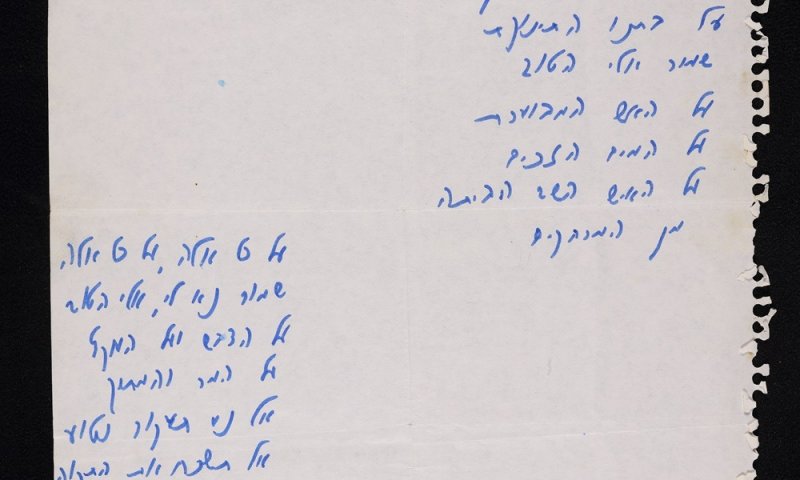 על בתנו התינוקת
שמור אלי הטוב
על האש המבוערת
על המים הזכים
על האיש השב הביתה
מן המרחקים
על כל אלה, על כל אלה,
שמור נא לי, אלי הטוב
על הדבש ועל העוקץ
על המר והמתוק
אל נא תעקור נטוע
אל תשכח את התקוה